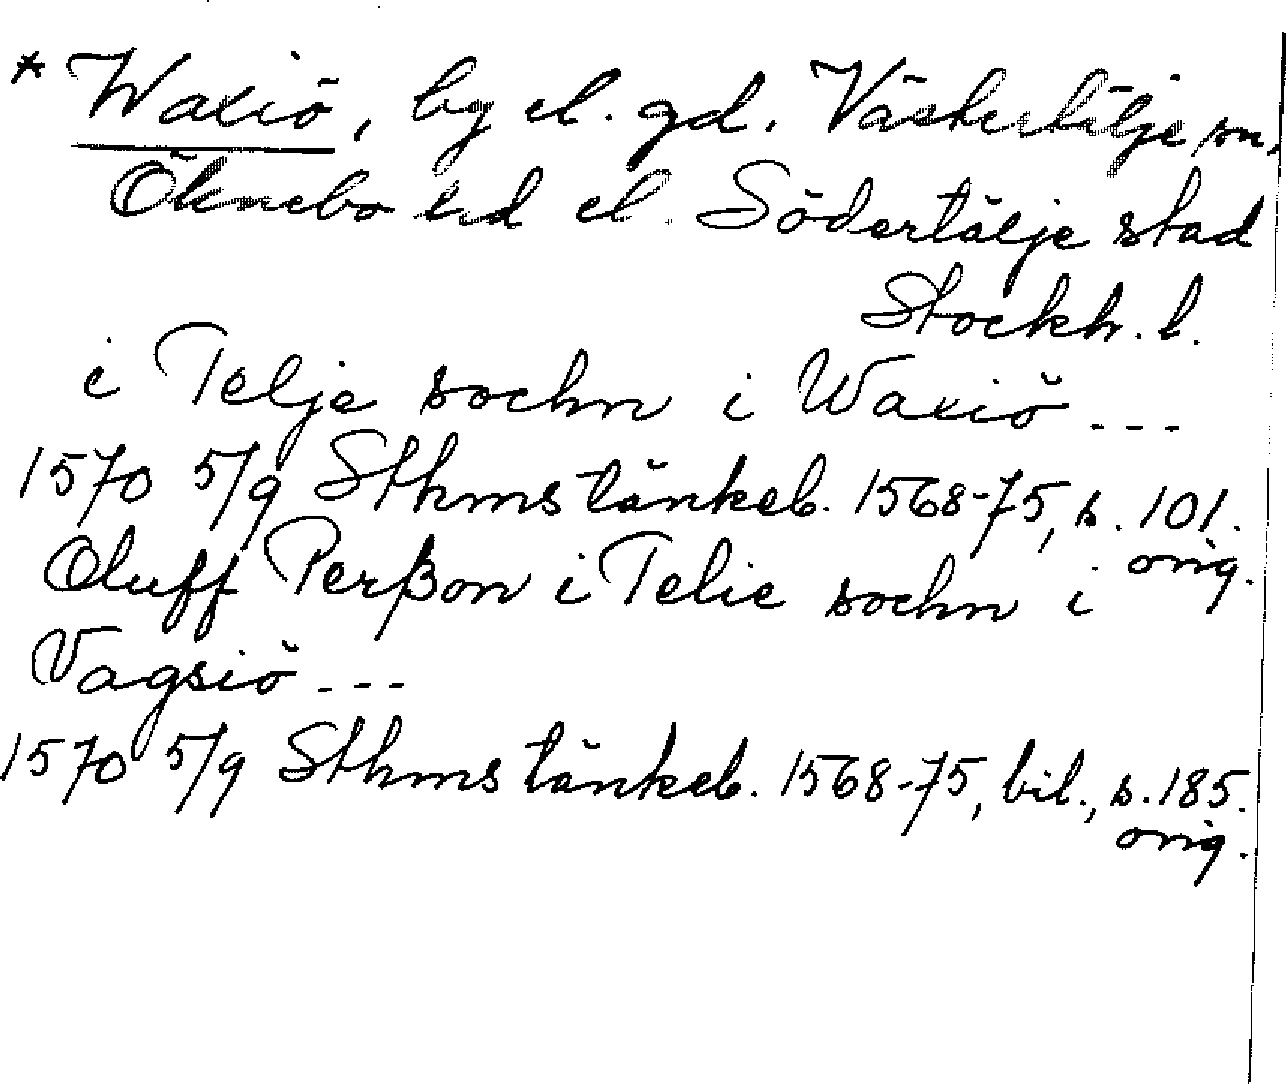 * Waxiö, by el. gd. Västertälje sn,
Öknebo hd el. Södertälje stad
Stockh. l.
i Telje sochn i Waxiö ---
1570 5/9 Sthms tänkeb. 1568-75, s. 101.
orig.
Oluff Perßon i Telie sochn i
Vagsiö ---
1570 5/9 Sthms tänkeb. 1568-75, bil., s. 185.
orig.